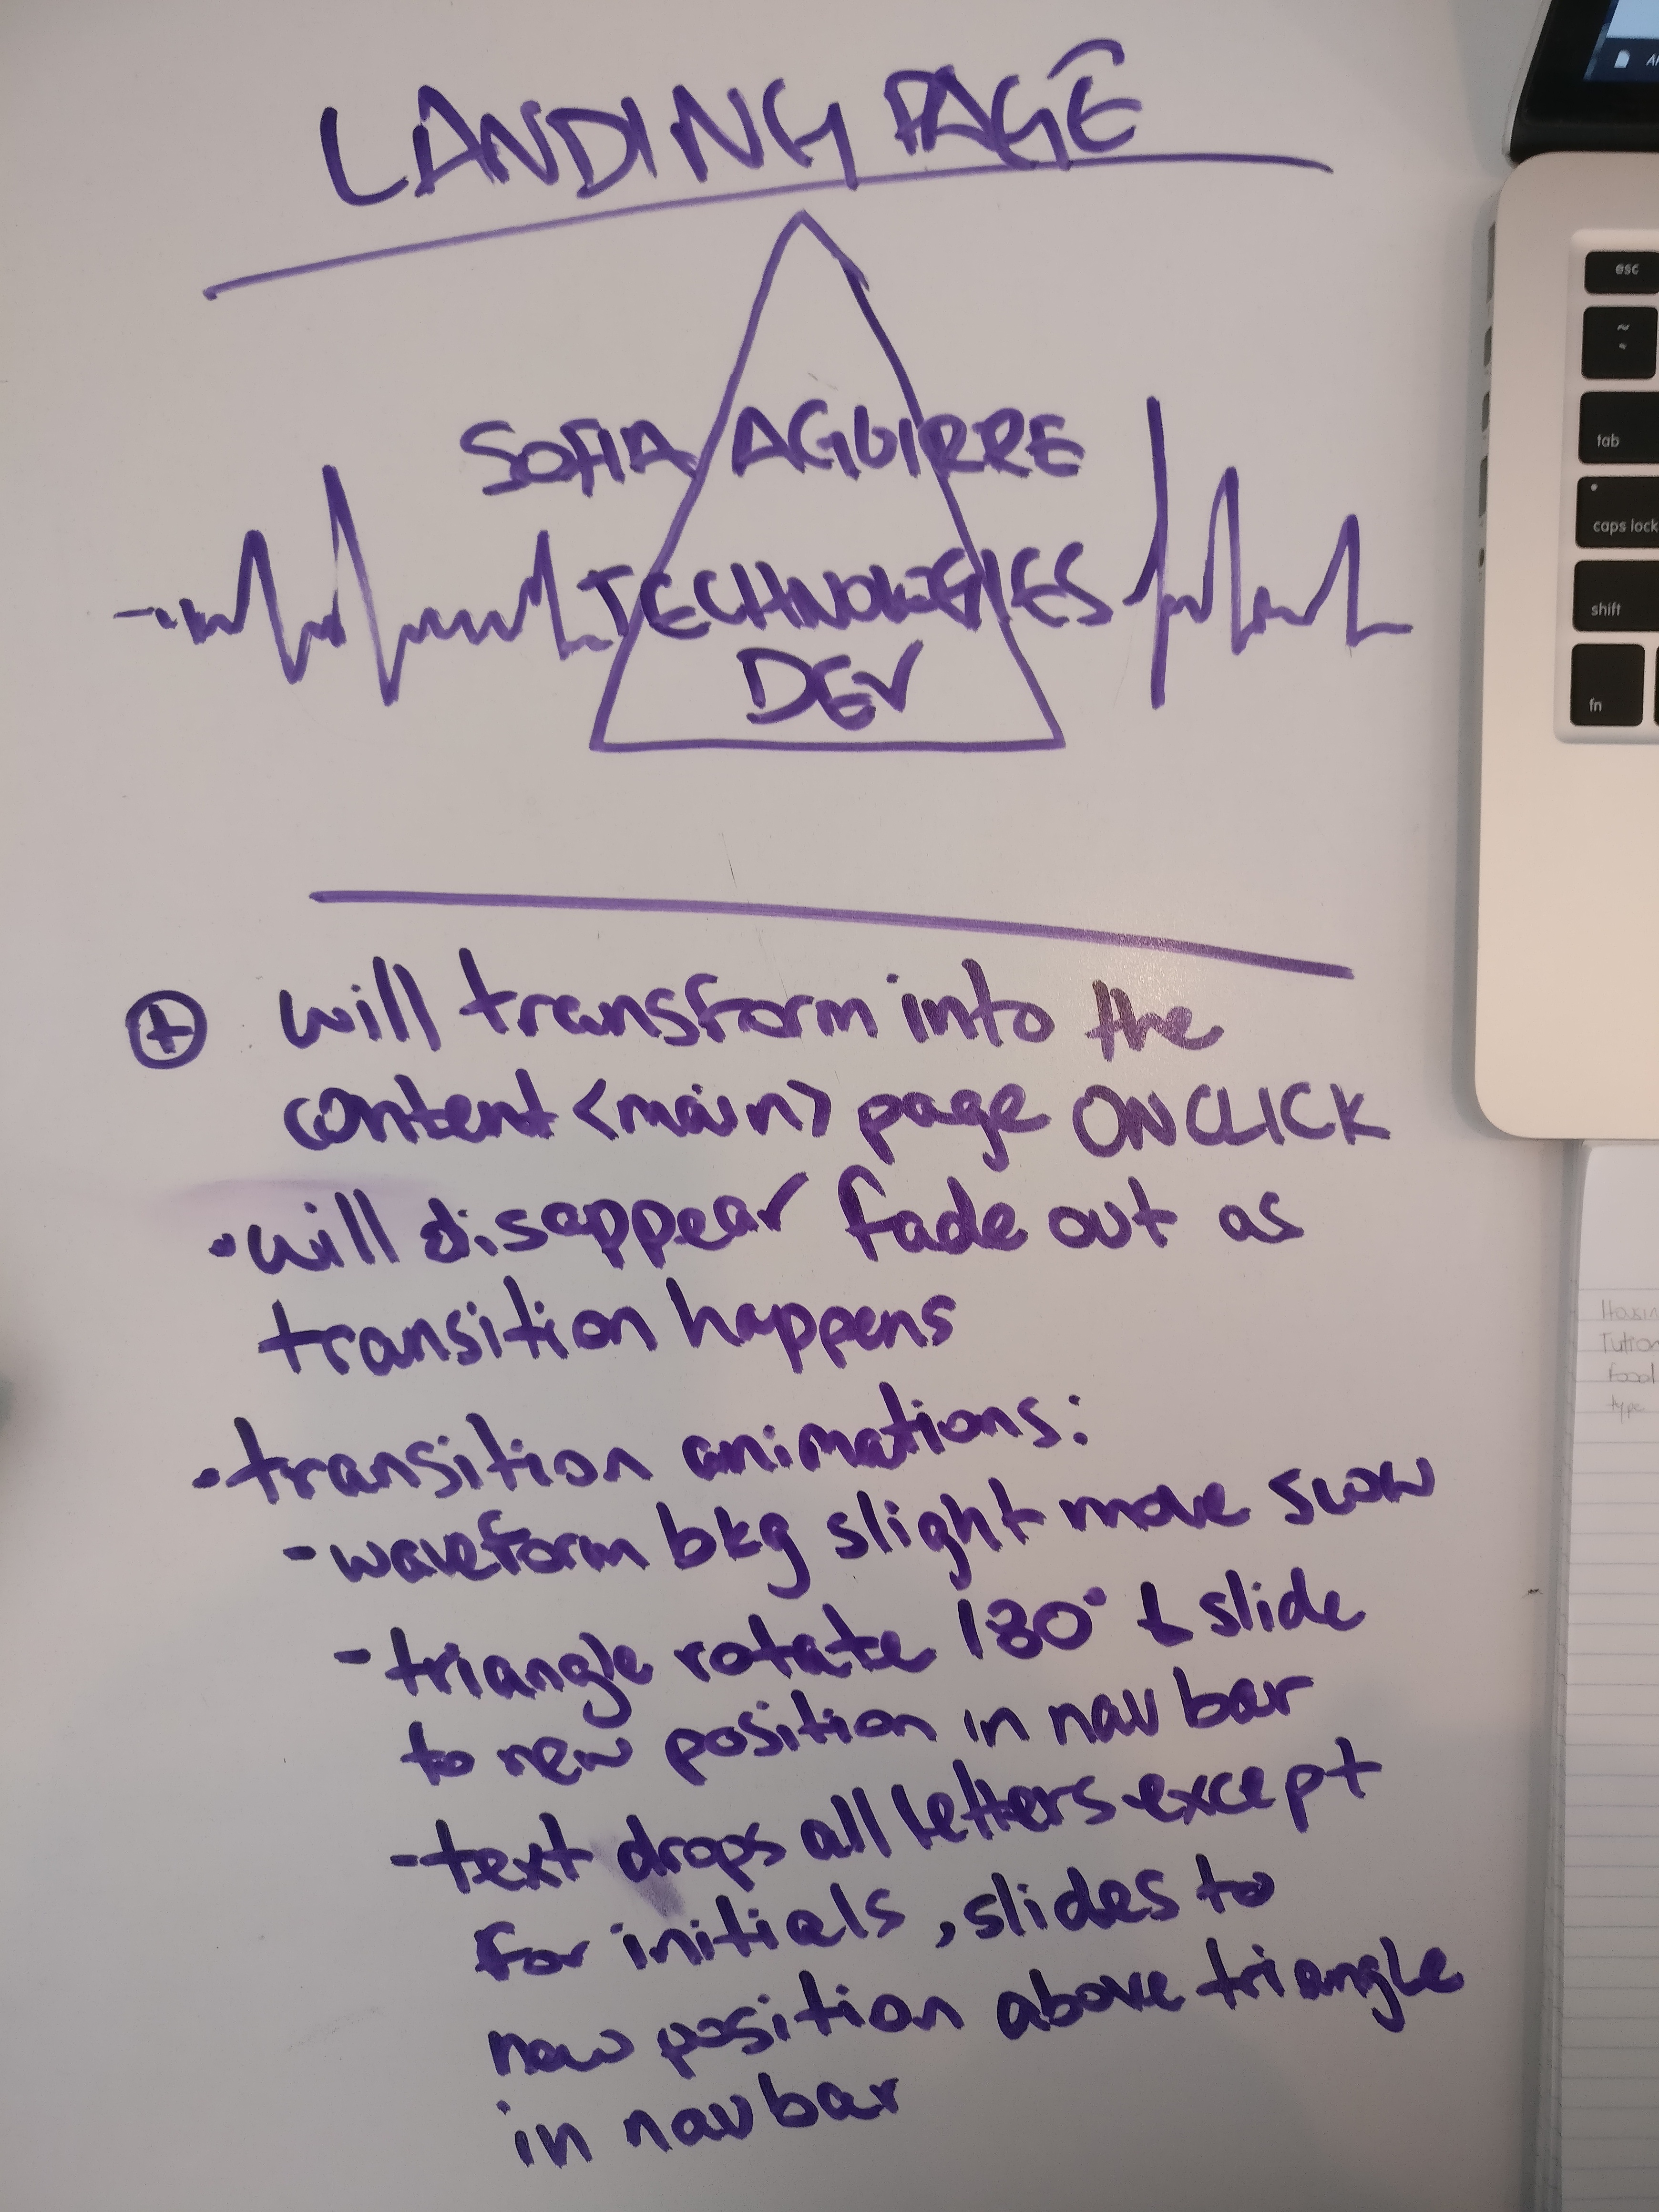 LANDING PAGE
SOFIA AGUIRRE
TECHNOLOGIES
DEV
+ will transform into the
content <main> page ONCLICK
• will disappear fade out as
transition happens
• transition animations:
- waveform bkg slight move slow
- triangle rotate 180° & slide
to new position in nav bar
- text drops all letters except
for initials, slides to
new position above triangle
in navbar
esc
~
tab
caps lock
shift
fn
Tuition
Food
type